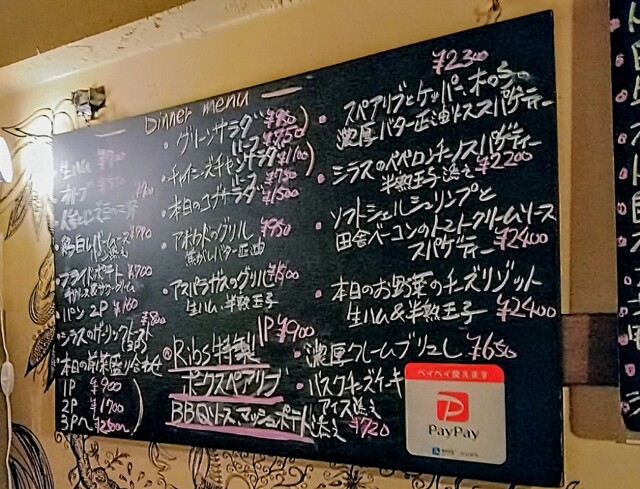 Dinner menu
・生ハム ¥700
・オリーブ ¥550
・フライドポテト ¥700
・パン 2P ¥160
・シラスのガーリックトースト ¥800
・本日の前菜盛り合わせ
1P ¥900
2P ¥1700
3P〜 ¥2500〜
・グリーンサラダ ¥950
ハーフ ¥750
・チャイニーズチキンサラダ ¥1100
ハーフ ¥750
・本日のコブサラダ ¥1500
・アボカドのグリル ¥950
焦がしバター醤油
・アスパラガスのグリル ¥1500
生ハム・半熟玉子
1P ¥900
Ribs特製
ポークスペアリブ
BBQソース マッシュポテト添え
¥2300
・スペアリブとケッパー、木の子の
濃厚バター醤油ソーススパゲティー
・シラスのペペロンチーノスパゲティー
半熟玉子添え ¥2200
・ソフトシェルシュリンプと
田舎ベーコンのトマトクリームソース
スパゲティー ¥2400
・本日のお野菜のチーズリゾット
生ハム&半熟玉子 ¥2400
・濃厚クレームブリュレ ¥650
・バスクチーズケーキ
アイス添え ¥720
ペイペイ使えます
PayPay